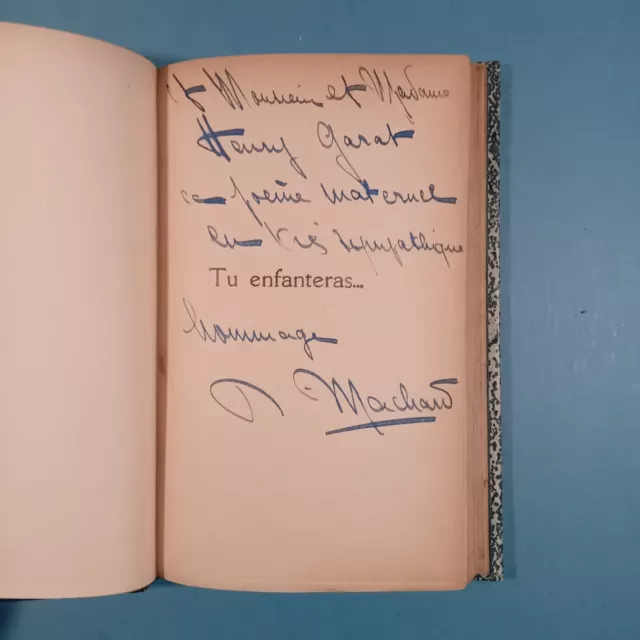 à Monsieur et Madame
Henry Garat
ce poème maternel
en très sympathique
Tu enfanteras...
hommage
Machard